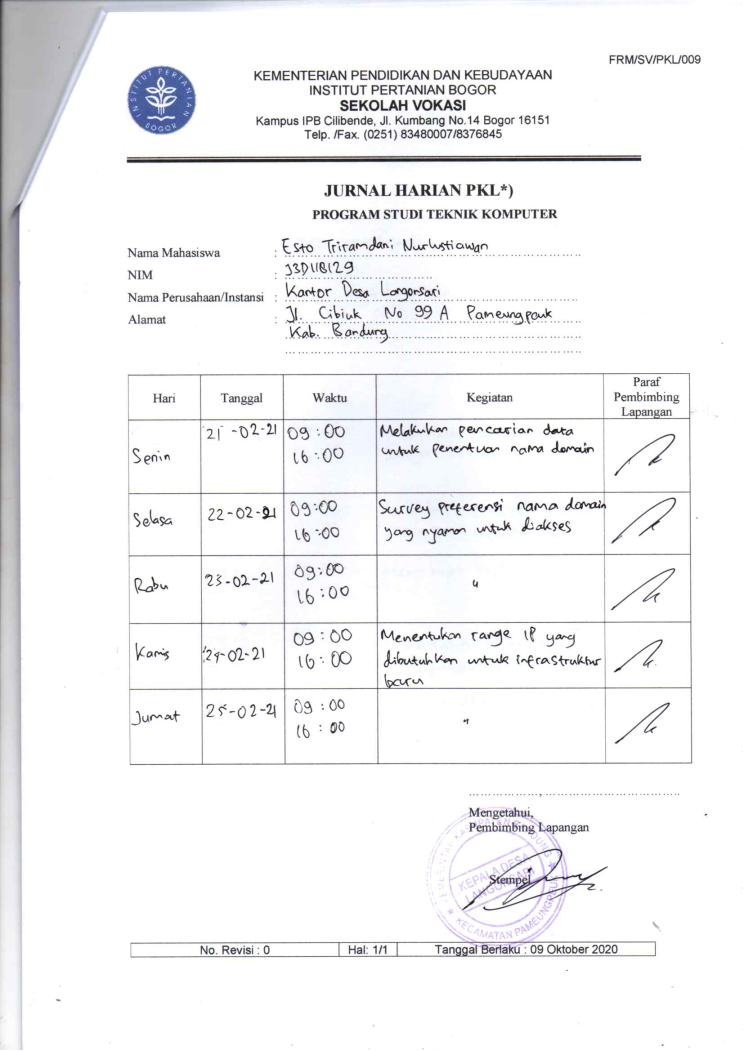 FRM/SV/PKL/009
INSTITUT PERTANIAN
BOGOR
KEMENTERIAN PENDIDIKAN DAN KEBUDAYAAN
INSTITUT PERTANIAN BOGOR
SEKOLAH VOKASI
Kampus IPB Cilibende, Jl. Kumbang No.14 Bogor 16151
Telp. /Fax. (0251) 83480007/8376845
JURNAL HARIAN PKL*)
PROGRAM STUDI TEKNIK KOMPUTER
Nama Mahasiswa : Esto Triramdani Nurlustiawan
NIM : J3D118129
Nama Perusahaan/Instansi : Kantor Desa Langonsari
Alamat : Jl. Cibiuk No 99 A Pameungpeuk
Kab. Bandung
Hari Tanggal Waktu Kegiatan Paraf Pembimbing Lapangan
Senin 21-02-21 09:00 16:00 Melakukan pencarian data
untuk penentuan nama domain
Selasa 22-02-21 09:00 16:00 Survey preferensi nama domain
yang nyaman untuk diakses
Rabu 23-02-21 09:00 16:00 "
Kamis 24-02-21 09:00 16:00 Menentukan range IP yang
dibutuhkan untuk infrastruktur
baru
Jumat 25-02-21 09:00 16:00 "
Mengetahui,
Pembimbing Lapangan
Stempel
KEPALA DESA
LANGONSARI
KECAMATAN PAMEUNGPEUK
No. Revisi : 0 Hal: 1/1 Tanggal Berlaku : 09 Oktober 2020